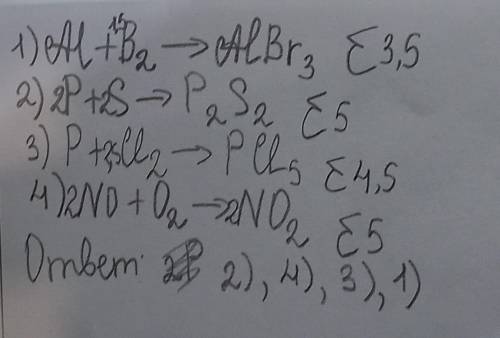 1) Al + 1,5 B₂ → AlBr₃ Σ3,5
2) 2P + 2S → P₂S₂ Σ5
3) P + 2,5Cl₂ → PCl₅ Σ4,5
4) 2NO + O₂ → 2NO₂ Σ5
Ответ: 2), 4), 3), 1)